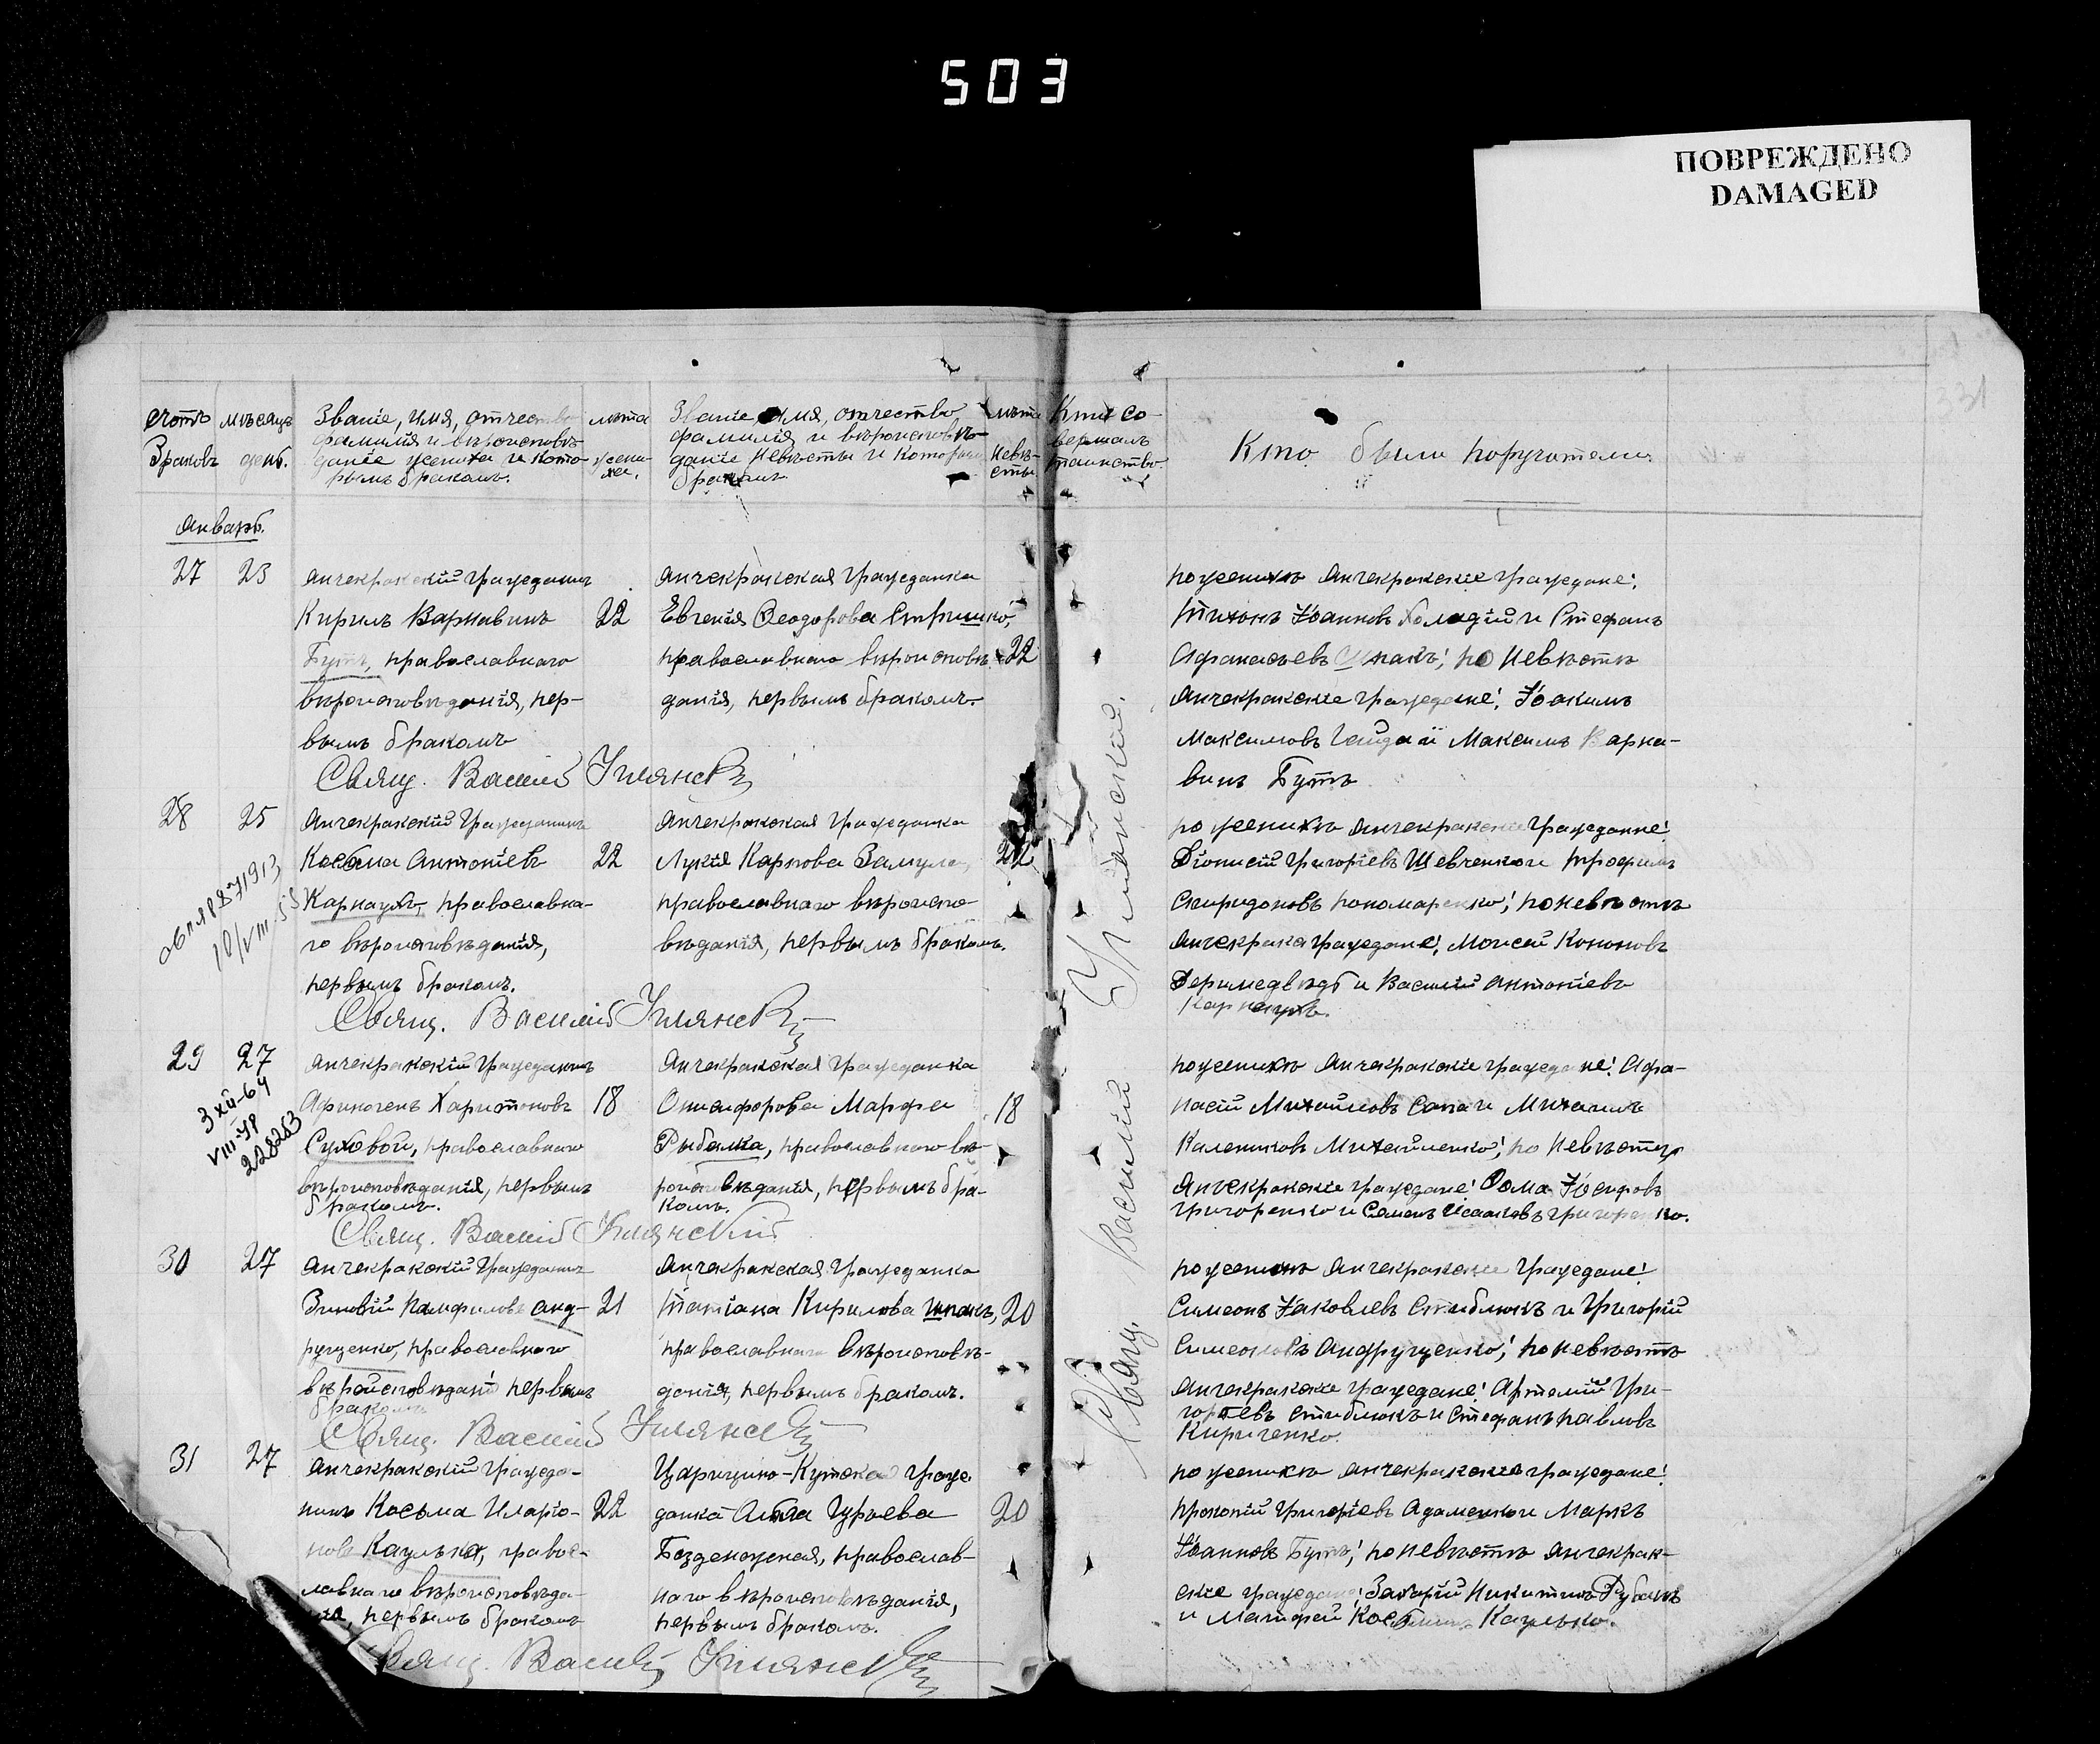 503
ПОВРЕЖДЕНО
DAMAGED
331
счетъ браковъ
мѣсяцъ день.
Званіе, имя, отчество
фамилія и вѣроисповѣ-
даніе жениха и кото-
рымъ бракомъ.
лѣта жени-
ха.
Званіе, имя, отчество
фамилія и вѣроисповѣ-
даніе невѣсты и которым
бракомъ
лѣта
Невѣ-
сты
Кто со-
вершалъ
таинство.
Кто были поручители
Январь.
27 23
Анчекракскій гражданинъ
Кирилъ Варнавинъ 22
Бутъ, православнаго
вѣроисповѣданія, пер-
вымъ бракомъ
Анчекракская гражданка
Евгенія Ѳеодорова
православнаго вѣроисповѣ- 22
данія, первымъ бракомъ.
по женихѣ Анчекракскіе граждане:
Тихонъ Іоанновъ и Стефанъ
Афанасьевъ по невѣстѣ
Анчекракскіе граждане: Іоакимъ
Максимовъ Гайдай Максимъ Варна-
винъ Бутъ
Свящ. Василій
28 25
Анчекракскій гражданинъ
Косьма Антоніевъ 22
Карнаухъ, православна-
го вѣроисповѣданія,
первымъ бракомъ.
Анчекракская гражданка
Лукія Карпова Замула 22
православнаго вѣроиспо-
вѣданія, первымъ бракомъ.
по женихѣ Анчекракскіе граждане:
Діонисій Григоріевъ Шевченко и Трофимъ
Спиридоновъ Пономаренко; по невѣстѣ
Анчекракск граждане: Моисей Кононовъ
Деримедвѣдь и Василій Антоніевъ
Карнаухъ.
1913
10/VIII
Свящ. Василій
29 27
3 XII-64
228263
Анчекракскій гражданинъ
Афиногенъ Харитоновъ 18
Суховой, православнаго
вѣроисповѣданія, первымъ
бракомъ.
Анчекракская гражданка
Онисифорова Марфа 18
Рыбалка, православнаго вѣ-
роисповѣданія, первымъ бра-
комъ.
по женихѣ Анчекракскіе граждане: Афа-
насій Михайловъ Сапа и Михаилъ
Калениковъ Михайленко; по невѣстѣ
Анчекракскіе граждане: Ѳома Іосифовъ
Григоренко и Семенъ Исааковъ Григоренко.
Свящ. Василій
30 27
Анчекракскій гражданинъ
Зиновій Памфиловъ Анд- 21
рущенко, православнаго
вѣроисповѣданія первымъ
бракомъ
Анчекракская гражданка
Татіана Кирилова Шпакъ, 20
православнаго вѣроисповѣ-
данія, первымъ бракомъ.
по женихѣ Анчекракскіе граждане:
Симеонъ Іаковлевъ Стиблюкъ и Григорій
Симеоновъ Андрущенко; по невѣстѣ
Анчекракскіе граждане: Артемій Гри-
горіевъ Стиблюкъ и Стефанъ Павловъ
Кириченко.
Свящ. Василій
31 27
Анчекракскій гражда-
нинъ Косьма Иларіо- 22
новъ Кацулько, правос-
лавнаго вѣроисповѣда-
нія, первымъ бракомъ
Царицыно-Кутская граж
данка Анна Гурьева 20
Бозденожная, православ-
наго вѣроисповѣданія,
первымъ бракомъ.
по женихѣ Анчекракскіе граждане:
Прокопій Григоріевъ Адаменко и Маркъ
Іоанновъ Бутъ; по невѣстѣ Анчекрак-
скіе граждане: Захарій Никитинъ Рубанъ
и Матфей Косминъ Кацулько.
Свящ. Василій
Свящ. Василій